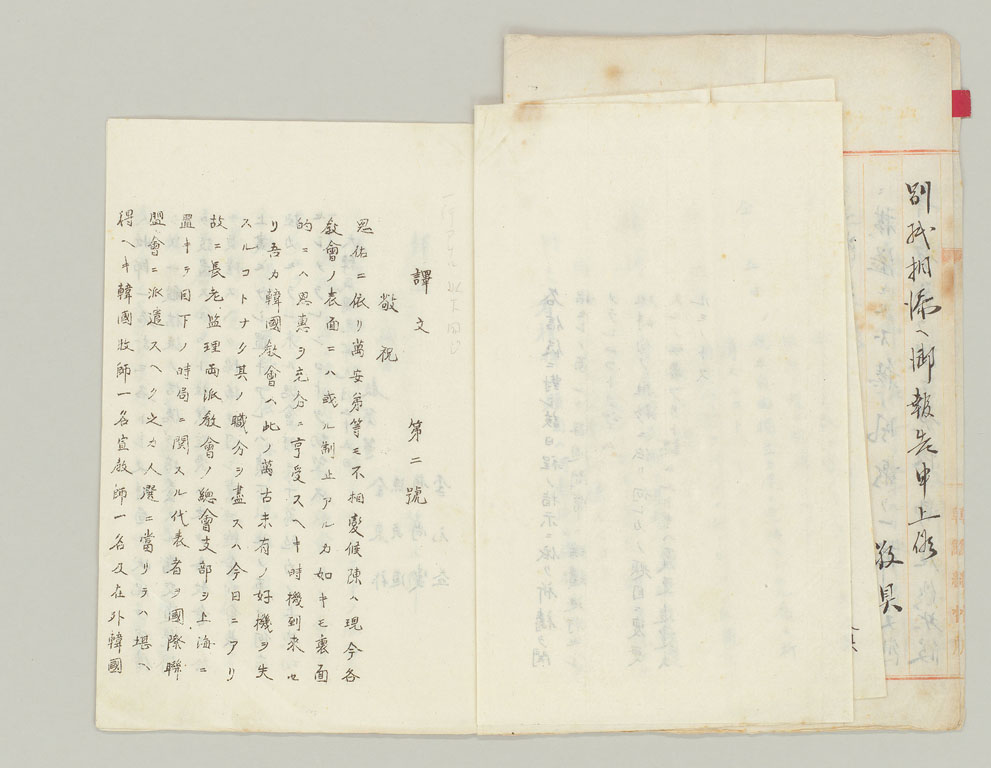 別紙相添ヘ御報告申上候
敬具
第二號
譯文
敬祝
恩佑ニ依リ萬安弟等モ不相變候陳ハ現今各
敎會ノ表面ニハ或ル制止アルカ如キモ裏面
的ニハ恩惠ヲ充分ニ享受スヘキ時機到來セ
リ吾カ韓國敎會ハ此ノ萬古未有ノ好機ヲ失
スルコトナク其ノ職分ヲ盡スハ今日ニアリ
故ニ長老監理兩派敎會ノ總會支部ヲ上海ニ
置キヲ目下ノ時局ニ関スル代表者ヲ國際聯
盟會ニ派遣スヘク之カ人選ニ當リテハ堪ヘ
得ヘキ韓國牧師一名宣敎師一名及在外韓國